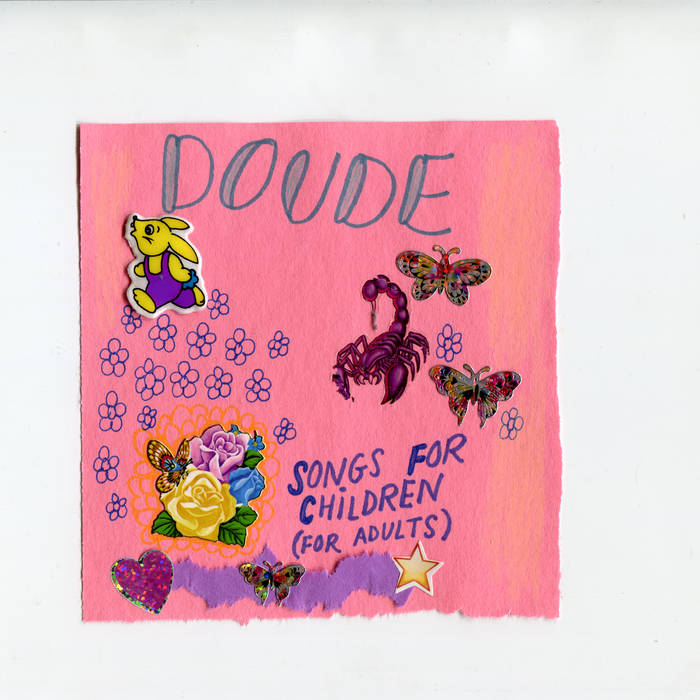 DOUDE
SONGS FOR
CHILDREN
(FOR ADULTS)